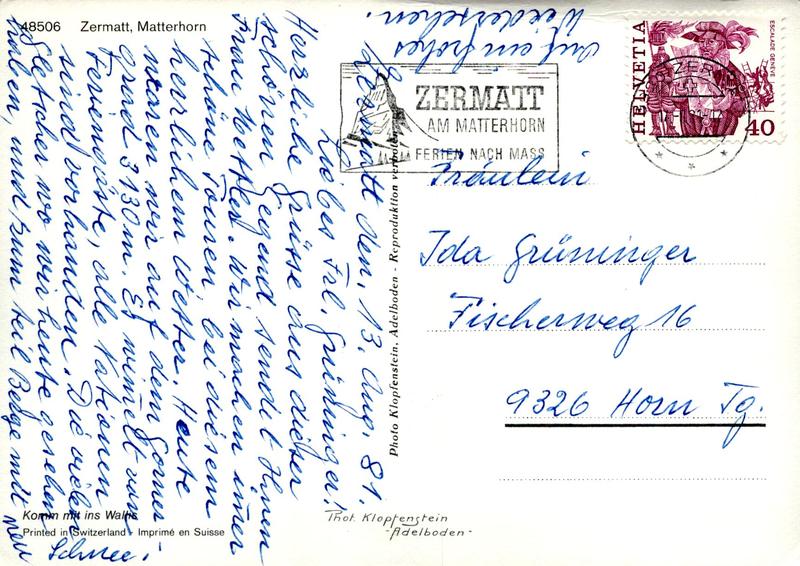 48506 Zermatt, Matterhorn
HELVETIA
ESCALADE GENÈVE
40
ZERMATT
AM MATTERHORN
FERIEN NACH MASS
Zermatt den, 13. Aug. 81.
Liebes Frl. Grüninger!
Herzliche Grüsse aus dieser
schönen Gegend sendet Ihnen
Frau Wir machen immer
schöne Touren bei diesem
herrlichem Wetter. Heute
waren wir auf dem Gorner
grad 3130 m. Es wimelt von
Feriengäste, alle Nationen
sind vorhanden. Die vielen
Gletscher wo wir heute gesehen
haben, und zum teil Berge mit neu
Schnee!
Auf ein frohes
Wiedersehen.
Fräulein
Ida Grüninger
Fischerweg 16
9326 Horn Tg.
Photo Klopfenstein, Adelboden - Reproduktion verboten
Komm mit ins Wallis
Printed in Switzerland - Imprimé en Suisse
Phot. Klopfenstein
- Adelboden -